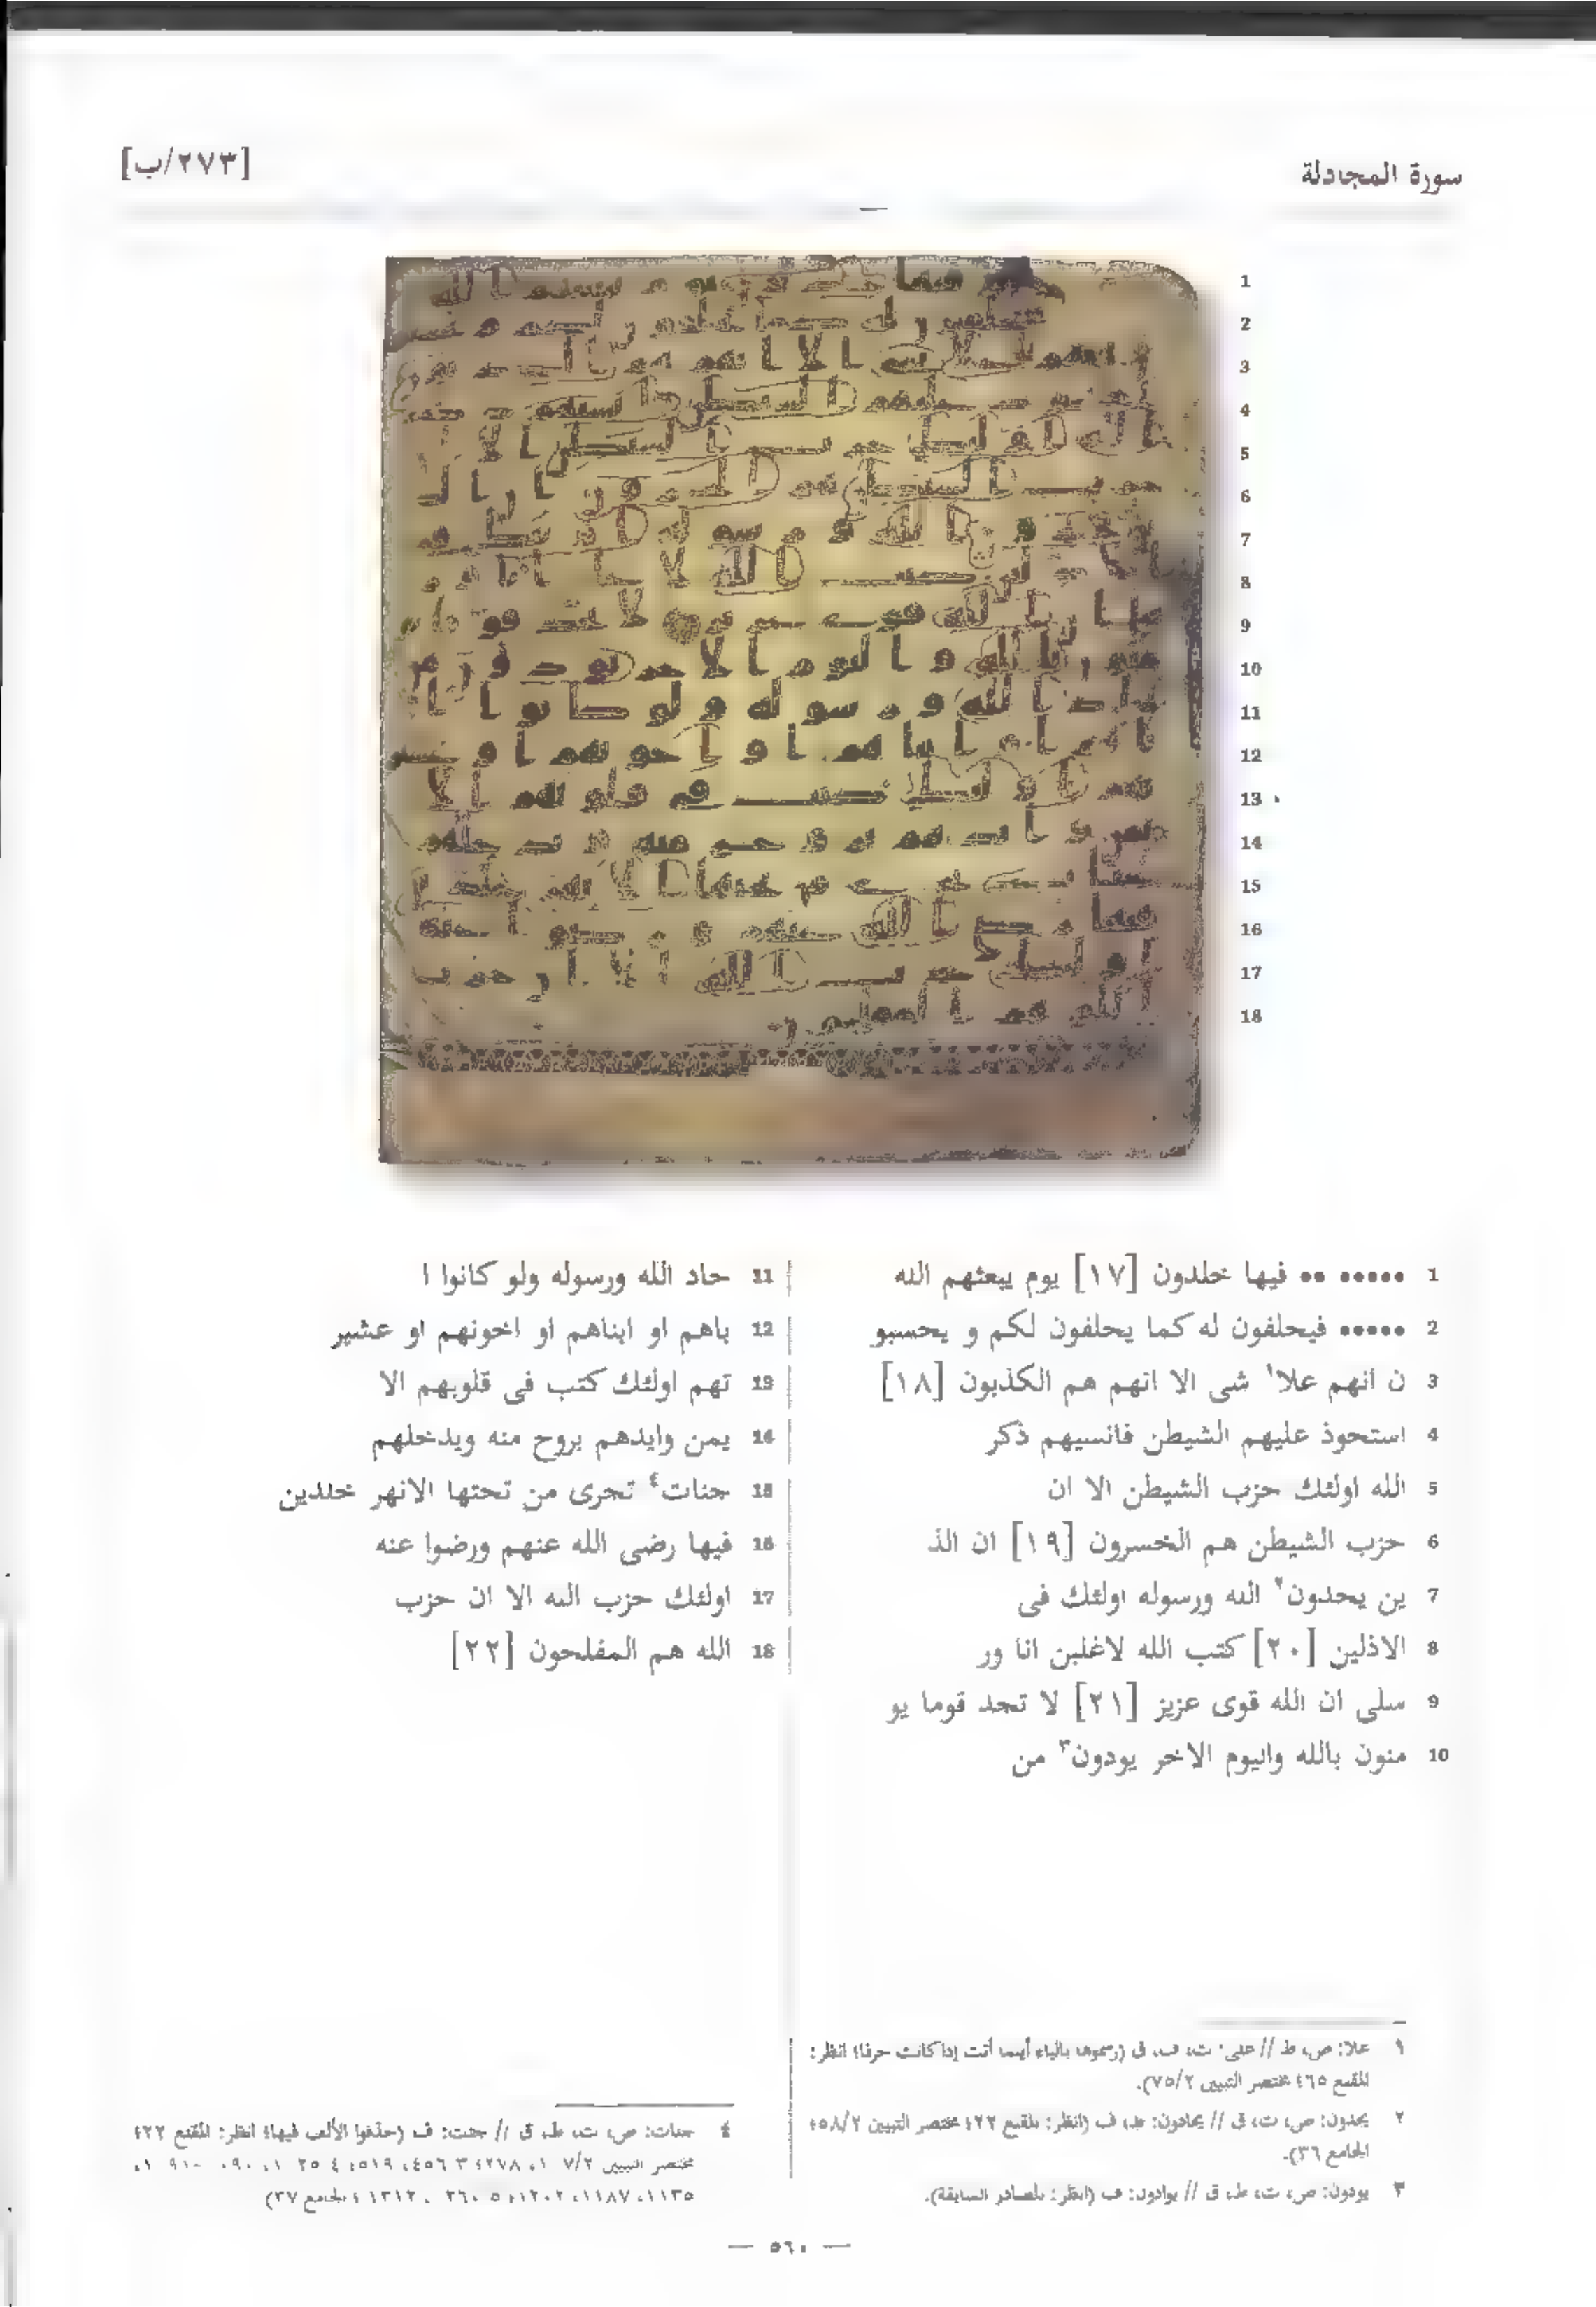 سورة المجادلة
[٢٧٣/ب]
1 ••••• •• فيها خلدون [١٧] يوم يبعثهم الله
2 ••••• فيحلفون له كما يحلفون لكم و يحسبو
3 ن انهم علا١ شى الا انهم هم الكذبون [١٨]
4 استحوذ عليهم الشيطن فانسيهم ذكر
5 الله اولئك حزب الشيطن الا ان
6 حزب الشيطن هم الخسرون [١٩] ان الذ
7 ين يحدون٢ الله ورسوله اولئك فى
8 الاذلين [٢٠] كتب الله لاغلبن انا ور
9 سلى ان الله قوى عزيز [٢١] لا تجد قوما يو
10 منون بالله واليوم الاخر يودون٣ من
11 حاد الله ورسوله ولو كانوا ا
12 باهم او ابناهم او اخونهم او عشير
13 تهم اولئك كتب فى قلوبهم الا
14 يمن وايدهم بروح منه ويدخلهم
15 جنات٤ تجرى من تحتها الانهر خلدين
16 فيها رضى الله عنهم ورضوا عنه
17 اولئك حزب الله الا ان حزب
18 الله هم المفلحون [٢٢]
١ علا: ص، ط // على: ت، ف، ق (رسموها بالياء أينما أتت إذا كانت حرفا؛ انظر:
المقنع ٤٦٥ مختصر التبيين ٧٥/٢).
٢ يحدون: ص، ت، ق // يحادون: ط، ف (انظر: المقنع ٤٢٢ مختصر التبيين ٤٥٨/٢
الجامع ٣٦).
٣ يودون: ص، ت، ط، ق // يوادون: ف (انظر: المصادر السابقة).
٤ جنات: ص، ت، ط، ق // جنت: ف (حذفوا الألف فيها؛ انظر: المقنع ٤٢٢
مختصر التبيين
الجامع ٣٧)
— ٥٦٠ —